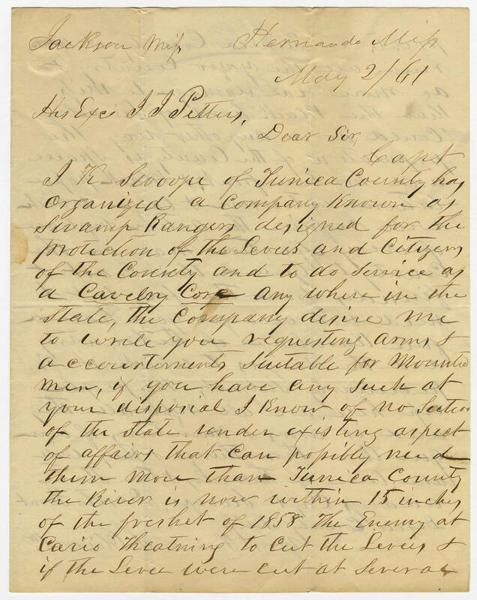 Jackson Miſs Hernando Miſs
May 2/61
His Exc J J Pettus,
Dear Sir,
Capt
J K Swoope of Tunica County has
organized a Company Known as
Swamp Rangers designed for the
protection of the Levees and Citizens
of the County and to do service as
a Cavelry Corp any where in the
State, the Company desire me
to write you requesting arms &
accourtements Suitable for Mounted
men, if you have any such at
your disposal I Know of no Section
of the State under existing aspect
of affairs that can poſsibly need
them more than Tunica County
the River is now within 15 inches
of the freshet of 1858 The Enemy at
Cairo threatning to Cut the Levees &
if the Levee were cut at Several